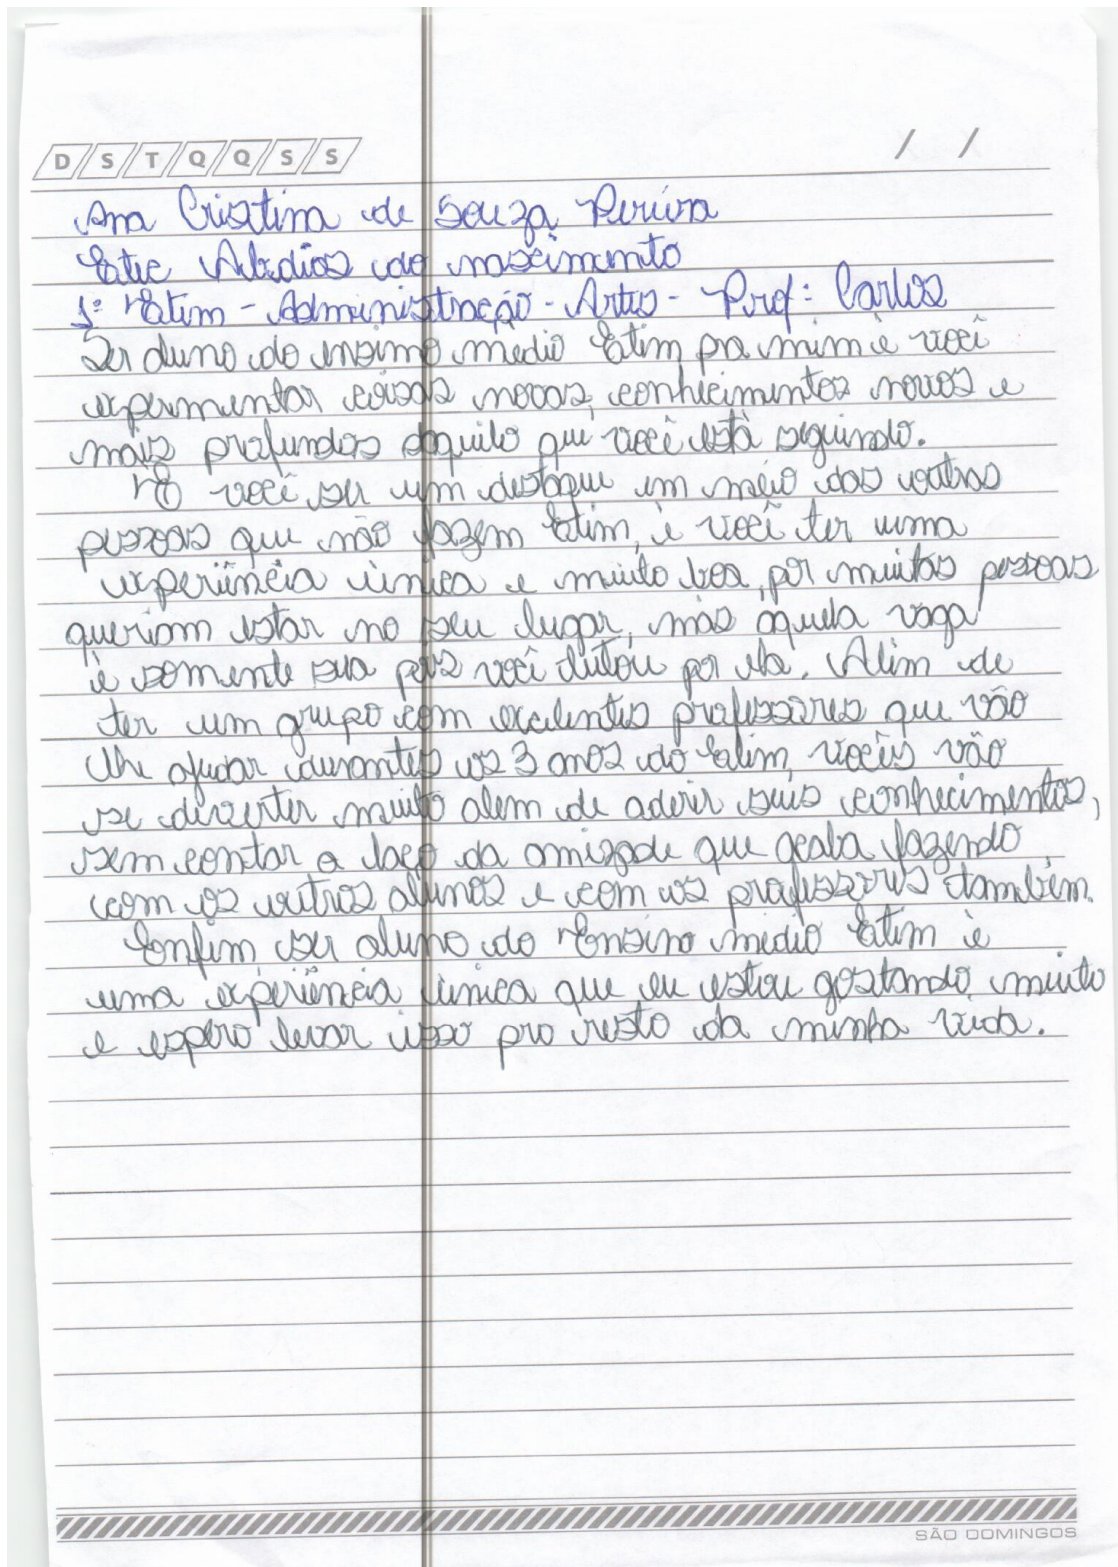 D S T Q Q S S / /
Ana Cristina de Souza Pereira
Etec Abdias do nascimento
1º Etim - Administração - Artes - Prof: Carlos
Ser aluno do ensino medio Etim pra mim é você
experimentar coisas novas, conhecimentos novos e
mais profundos daquilo que você está seguindo.
É você ser um destaque em meio das outras
pessoas que não fazem Etim, é você ter uma
experiência única e muito boa, por muitas pessoas
queriam estar no seu lugar, mas aquela vaga
é somente sua pois você lutou por ela. Além de
ter um grupo com excelentes professores que vão
lhe ajudar durantes os 3 anos do Etim, vocês vão
se diverter muito alem de aderir seus conhecimentos,
sem contar o laço da amizade que acaba fazendo
com os outros alunos e com os professores também.
Enfim, ser aluno do Ensino medio Etim é
uma experiência única que eu estou gostando muito
e espero levar isso pro resto da minha vida.
SÃO DOMINGOS